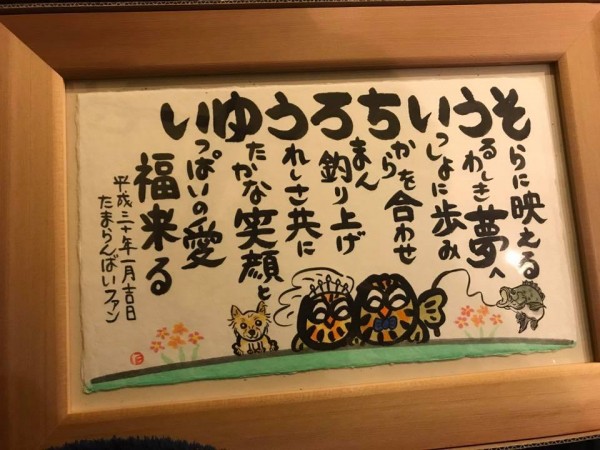 そらに映える
うるわしき夢へ
いっしょに歩み
ちからを合わせ
ろまん釣り上げ
うれしさ共に
ゆたかな笑顔と
いっぱいの愛
福来る
平成三十年一月吉日
たまらんばいファン